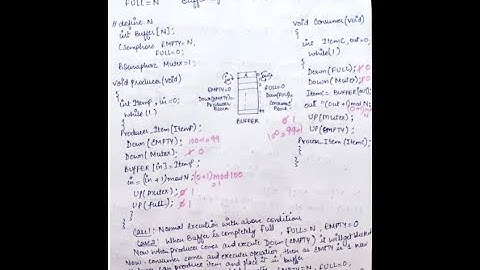 FULL=N
# define N
int Buffer [N];
CSemphore EMPTY=N,
FULL=0;
BSemaphore Mutex=1;
void producer(void)
{
int Itemp, in=0;
while(1)
{
Produces-Item(Itemp)
Down(EMPTY); 100-1=99
Down(Mutex); 1 0
BUFFER [in]=Itemp
in=(in+1)mod N; (0+1)mod 100
=1
UP(Mutex); 0 1
UP(full); 0 1
}
}
A
EMPTY=0
Down(EMPTY)
Producer
Block
FULL=0
Down(FULL)
Consumer
Block
BUFFER
void Consumer(void)
{
int ItemC, out=0;
while(1)
{
Down(FULL); 1 0
Down(Mutex); 1 0
ItemC= BUFFER[out];
out=(out+1)mod N;
0 1 UP(Mutex);
99+1 UP(EMPTY)
Process-Item(ItemC)
}
}
Case1: Normal Execution with above condition
Case2: When Buffer is completely full, FULL=N, EMPTY=0
Now when producer comes and execute Down(EMPTY) it will get blocked
Now, consumer comes and executes operation then as EMPTY is 1 now
producer can produce item and place it in buffer
EMPTY=N, FULL=0,